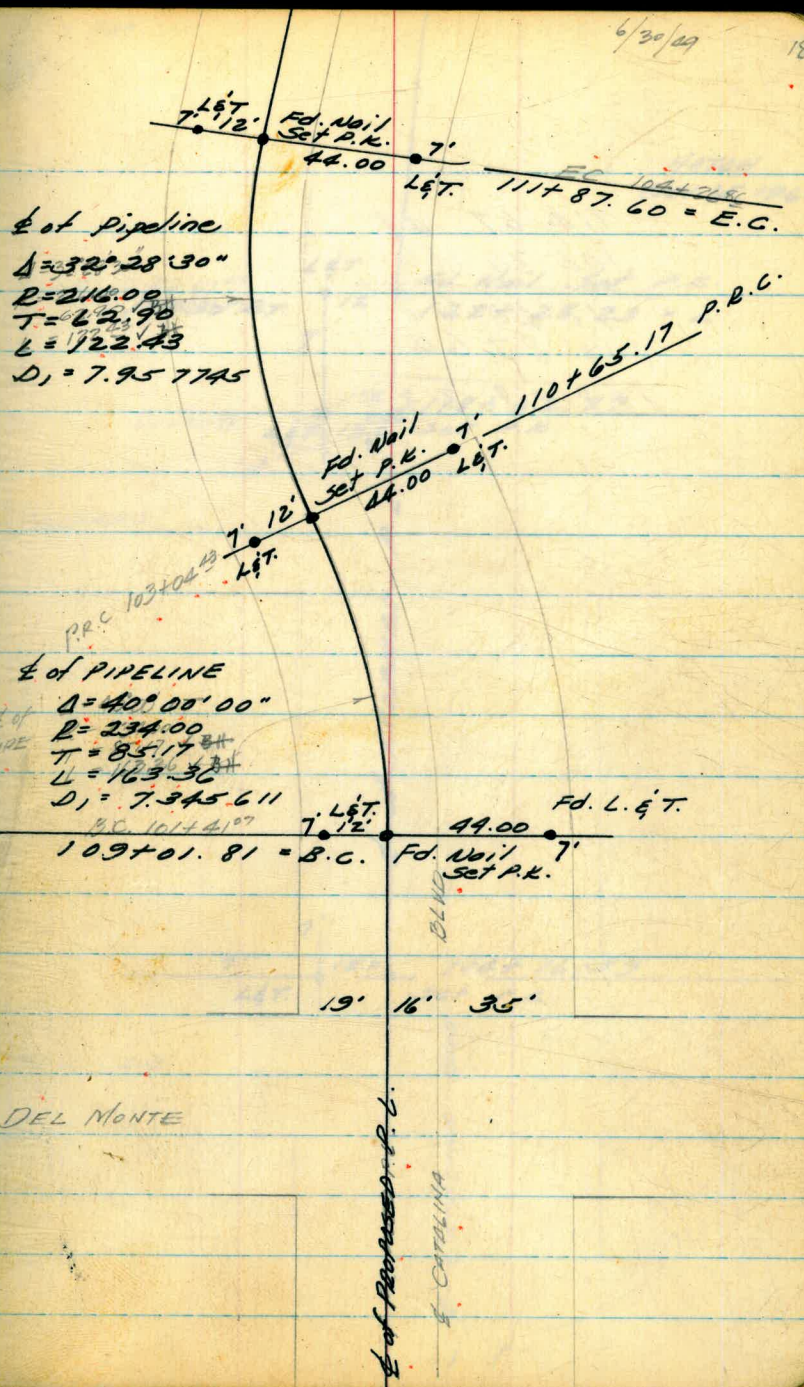 6/30/49
7' L&T. 12'
Fd. Nail
Set P.K.
44.00
7'
L&T.
EC
111+87.60 = E.C.
℄ of Pipeline
Δ=32°28'30"
R=216.00
T=62.90
L=122.43
D₁=7.957745
110+65.17 P.R.C.
Fd. Nail
Set P.K.
44.00
7'
L&T.
7' 12'
L&T.
P.R.C 103+04.43
℄ of PIPELINE
Δ=40°00'00"
R=234.00
T=85.17
L=163.36
D₁=7.345611
B.C. 101+41.07
109+01.81 = B.C.
7' L&T.
12'
44.00
Fd. L.&T.
7'
Fd. Nail
Set P.K.
BLVD
19' 16' 35'
DEL MONTE
℄ of PROPOSED P.L.
℄ CATALINA